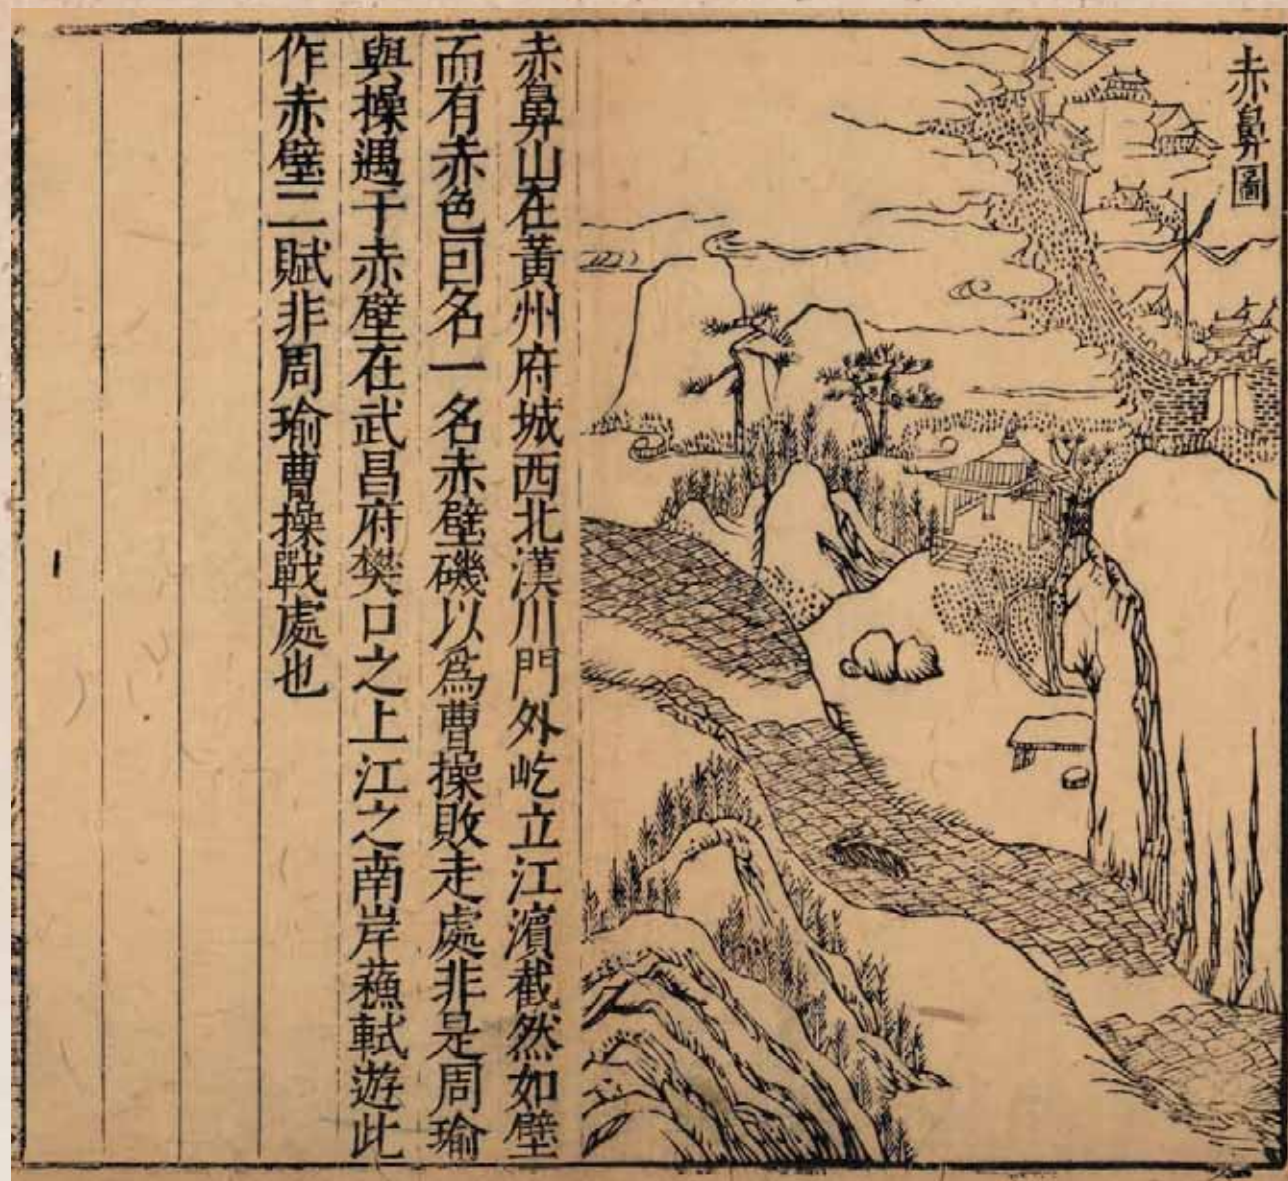 赤鼻圖
赤鼻山在黃州府城西北漢川門外屹立江濵截然如壁
而有赤色囙名一名赤壁磯以爲曹操敗走處非是周瑜
與操遇于赤壁在武昌府樊口之上江之南岸蘓軾遊此
作赤壁二賦非周瑜曹操戰處也